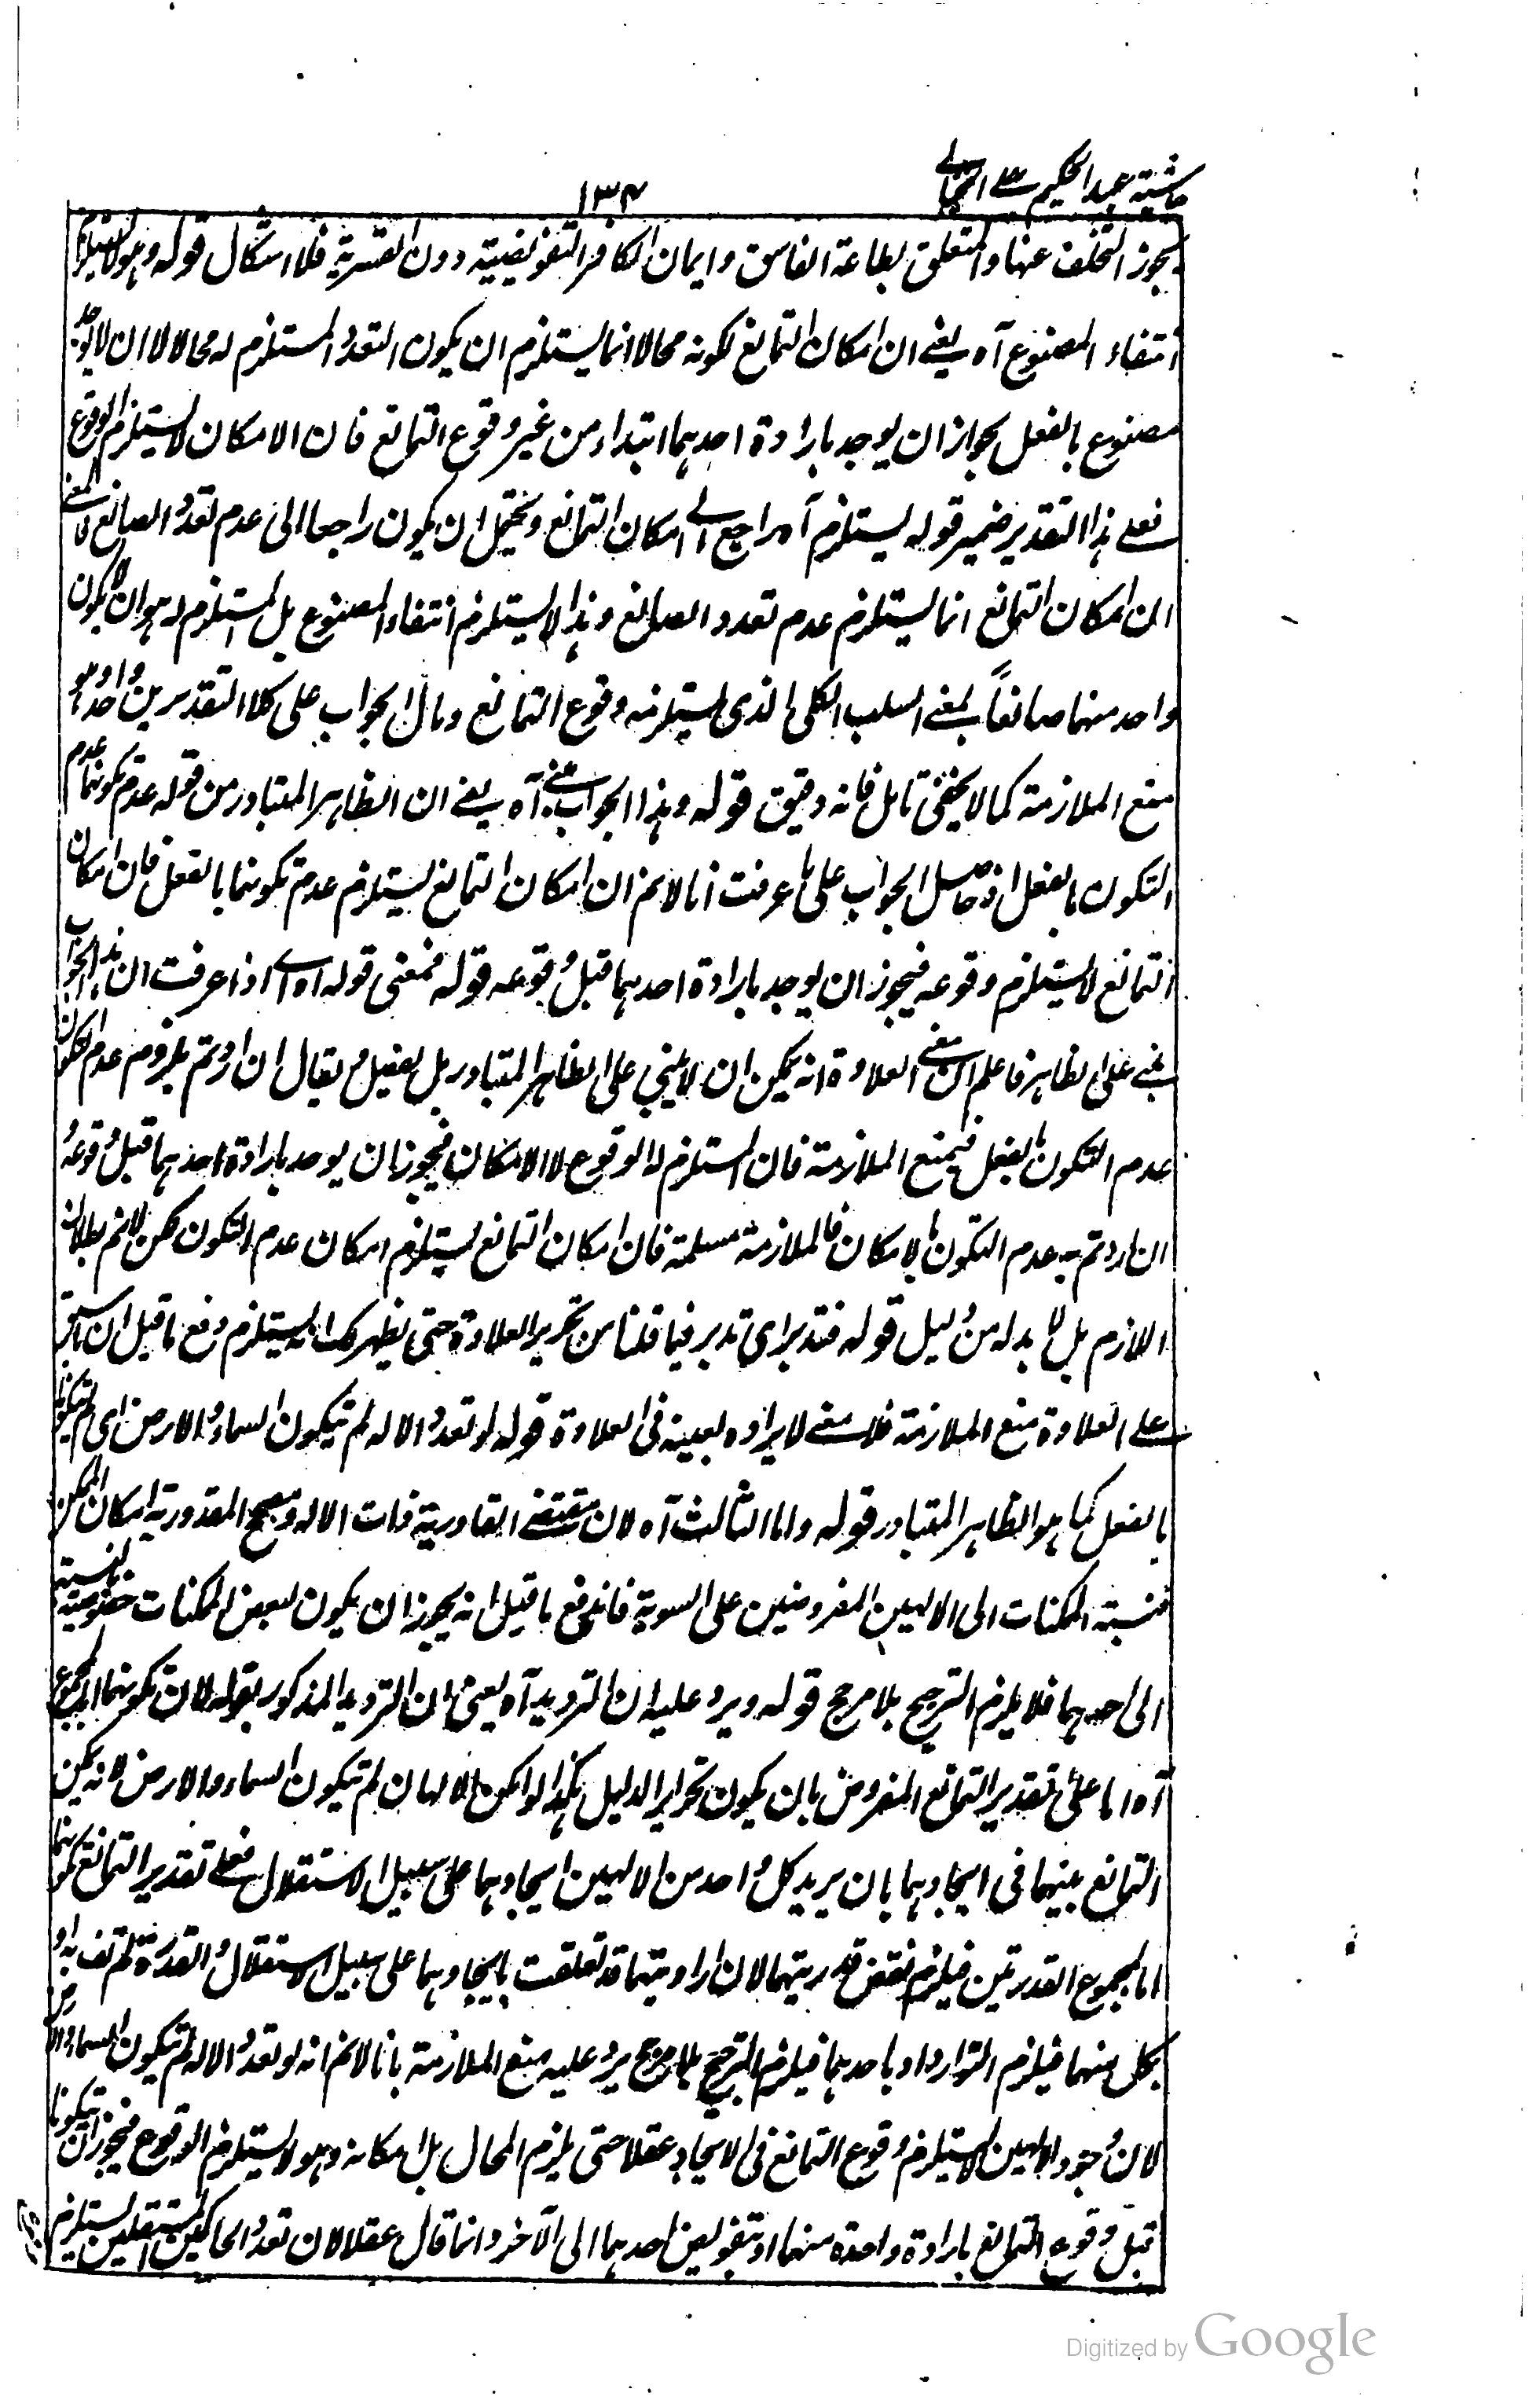 حاشية عبد الحكيم على الخيالي
١٣٤
يجوز التخلف عنها والمتعلق بطاعة الفاسق وايمان الكافر التفويضية دون القسرية فلا اشكال قوله وهو لا يستلزم
انتفاء المصنوع آه يعني ان امكان التمانع لكونه محالا انما يستلزم ان يكون التعدد المستلزم له محالا لا ان لا يوجد
مصنوع بالفعل بجواز ان يوجد بارادة احدهما ابتداء من غير وقوع التمانع فان الامكان لا يستلزم الوقوع
فعلى هذا التقدير ضمير قوله يستلزم آه راجع الى امكان التمانع ويحتمل ان يكون راجعا الى عدم تعدد الصانع فالمعنى
ان امكان التمانع انما يستلزم عدم تعدد الصانع وهذا لا يستلزم انتفاء المصنوع بل المستلزم له هو ان لا يكون
واحد منهما صانعاً بمعنى السلب الكلى الذى يستلزمه وقوع التمانع ومال الجواب على كلا التقديرين واحد وهو
منع الملازمة كما لا يخفى تامل فانه دقيق قوله وهذا الجواب مبني آه يعني ان الظاهر المتبادر من قوله عدم تكونهما عدم
التكون بالفعل اذ حاصل الجواب على ما عرفت انا لانم ان امكان التمانع يستلزم عدم تكونهما بالفعل فان امكان
التمانع لا يستلزم وقوعه فيجوز ان يوجد بارادة احدهما قبل وقوعه قوله فمعنى قوله آه اي اذا عرفت ان هذا الجواب
مبني على الظاهر فاعلم ان معنى العلاوة انه يمكن ان لا يبني على الظاهر المتبادر بل يفصل ويقال ان اردتم بلزوم عدم التكون
عدم التكون بالفعل فيمنع الملازمة فان المستلزم له الوقوع لا الامكان فيجوز ان يوجد بارادة احدهما قبل وقوعه و
ان اردتم به عدم التكون بالامكان فالملازمة مسلمة فان امكان التمانع يستلزم امكان عدم التكون لكن لانم بطلان
اللازم بل لا بد له من دليل قوله فتدبر اى تدبر فيما قلنا من تحرير العلاوة حتى يظهر لك انه يستلزم دفع ما قيل ان ما سبق
على العلاوة منع الملازمة فلا معنى لايراده بعينه فى العلاوة قوله لو تعدد الاله لم تتكون السماء والارض اى لم تتكونا
بالفعل كما هو الظاهر المتبادر قوله واما الثالث آه لان مقتضى القادرية ذات الاله ومصحح المقدورية امكان الممكن
فنسبة الممكنات الى الالهين المفروضين على السوية فاندفع ما قيل انه يجوز ان يكون لبعض الممكنات خصوصية بالنسبة
الى احدهما فلا يلزم الترجيح بلا مرجح قوله ويرد عليه ان الترديد آه يعنى ان الترديد المذكور بقوله لان تكونهما اما بمجموع
آه اما على تقدير التمانع المفروض بان يكون تحرير الدليل هكذا لو امكن الالهان لم تتكون السماء والارض لانه يمكن
التمانع بينهما فى ايجادهما بان يريد كل واحد من الالهين ايجادهما على سبيل الاستقلال فعلى تقدير التمانع تكونهما
اما لمجموع القدرتين فيلزم نقض قدرتيهما لان ارادتيهما قد تعلقت بايجادهما على سبيل الاستقلال والقدرة لم تف به او
بكل منهما فيلزم التوارد او باحدهما فيلزم الترجيح بلا مرجح يرد عليه منع الملازمة بانا لانم انه لو تعدد الاله لم تتكون السماء والارض
لان وجود الالهين لا يستلزم وقوع التمانع فى الايجاد عقلا حتى يلزم المحال بل امكانه وهو لا يستلزم الوقوع فيجوز ان تتكونا
قبل وقوع التمانع بارادة واحدة منهما او بتفويض احدهما الى الآخر وانما قال عقلا لان تعدد الحاكمين المستقلين يستلزم
Digitized by Google